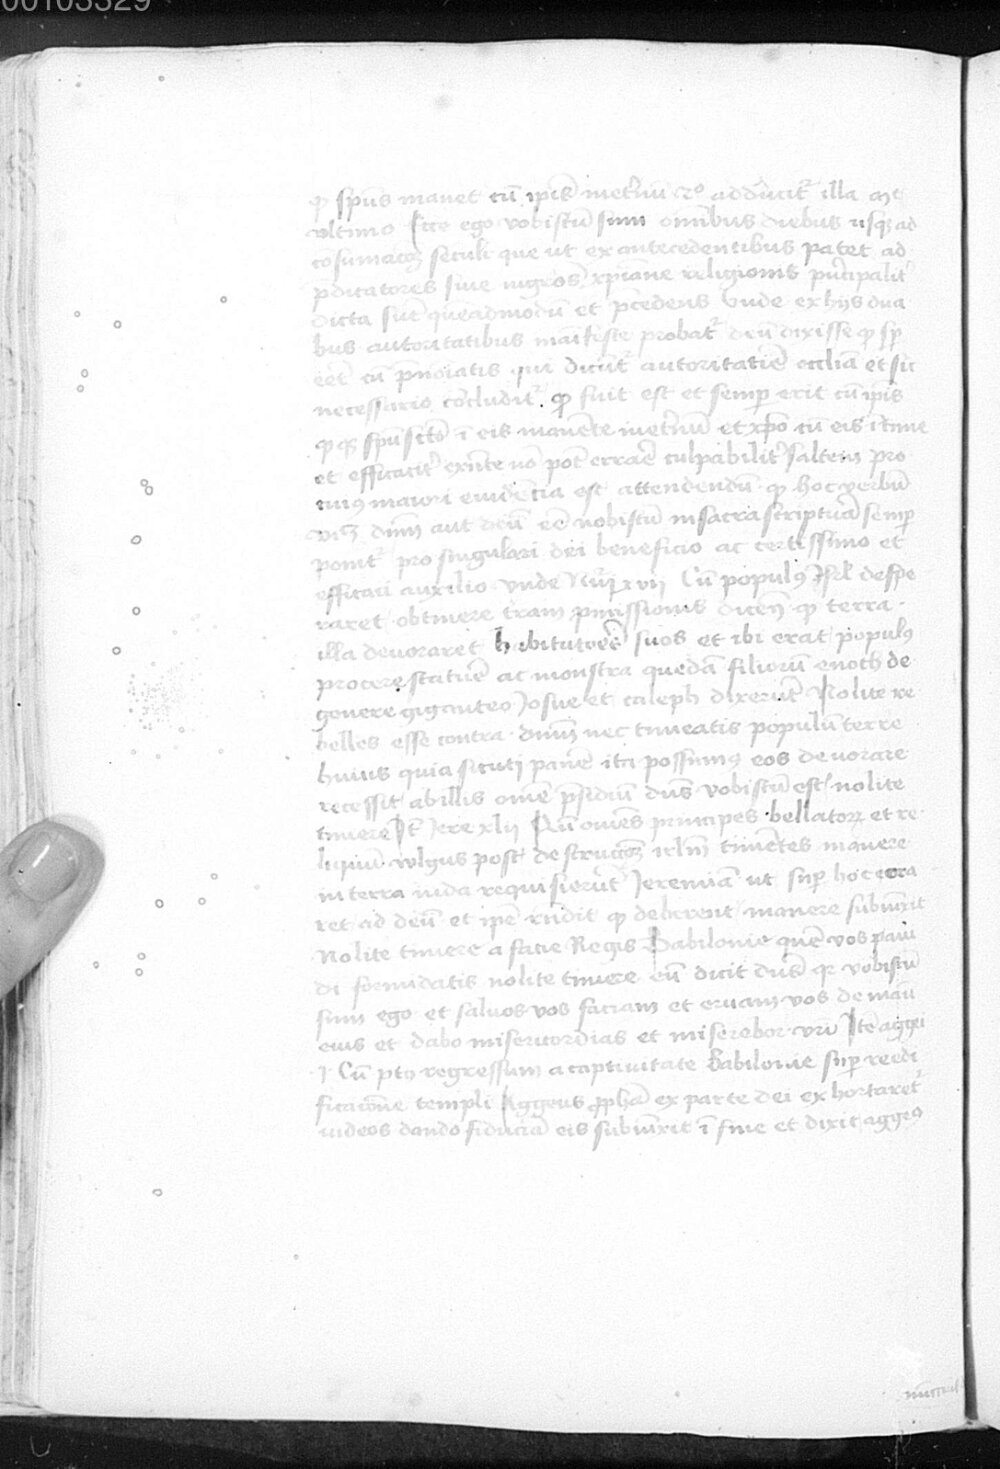 00103329
qƺ spūs manet cū ip̄is in etnū 2o adducit illa mt
ultimo Ecce ego vobiscū sum omībus diebus usqƺ ad
cōsumacōƺ seculi que ut ex antecedentibus patet ad
pdicatores siue xp̄iane religionis pncipalit
dicta sūt queadmodū et pcedens Unde ex hijs dua
bus autoritatibus maīfeste probat deū dixisse qƺ sp
eēt cū autoritatiē eccliā et sic
necessario cōcludit qƺ fuit est et semp erit cū ip̄is
spū sctō ī eis manēte in etnū et xp̄o cū eis
et efficacit exn̄te nō pōt errare culpabilit saltem pro
cuiƺ maiori euidētia est attendendū qƺ hoc verbū
dnm aut deū eē nobiscū in sacra scriptura semp
ponit pro singulari dei beneficio ac certissimo et
efficaci auxilio unde xvij Cū populƺ Isrl despe
raret obtinere tram pmissionis dicēs qƺ terra
illa deuoraret habitatores suos et ibi erat populƺ
procere stature ac monstra quedā filiorū enoch de
genere giganteo Josue et caleph dixerūt Nolite re
belles esse contra dnm nec timeatis populū terre
huius quia sicuti panē ita possumƺ eos deuorare
recessit ab illis omē psidiū dn̄s vobiscū est nolite
timere It Jere xlij Cū om̄es principes bellatorƺ et re
liquū vulgus post destructōƺ irlm timētes manere
in terra iuda requisierūt Jeremiā ut sup hoc ora
ret ad deū et ip̄e rn̄dit qƺ deberent manere subiūxit
Nolite timere a facie Regis Babilonie quē vos paui
di formidatis nolite timere eū dicit dn̄s qƺ vobiscū
sum ego et saluos vos faciam et eruam vos de manu
eius et dabo misericordias et miserebor vri Itē aggei
I Cū pto regressum a captiuitate Babilonie sup reedi
ficacōne templi Aggeus pp̄ha ex parte dei exhortaret
iudeos dando fiduciā eis subiūxit ī fine et dixit aggeƺ